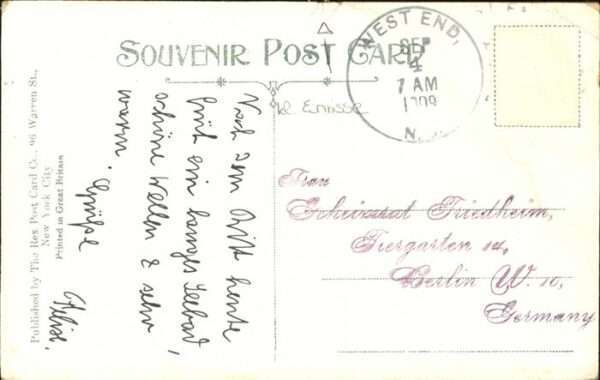 SOUVENIR POST CARD
WEST END,
SEP
4
7 AM
1909
N.
Nach dem Ritt heute
früh ein langes Seebad,
schöne Wellen & sehr
warm.
Grüße
Frau
Geheimrat Friedheim,
Tiergarten
Berlin W. 10,
Germany
Published by The Rex Post Card Co., 96 Warren St.,
New York City
Printed in Great Britain